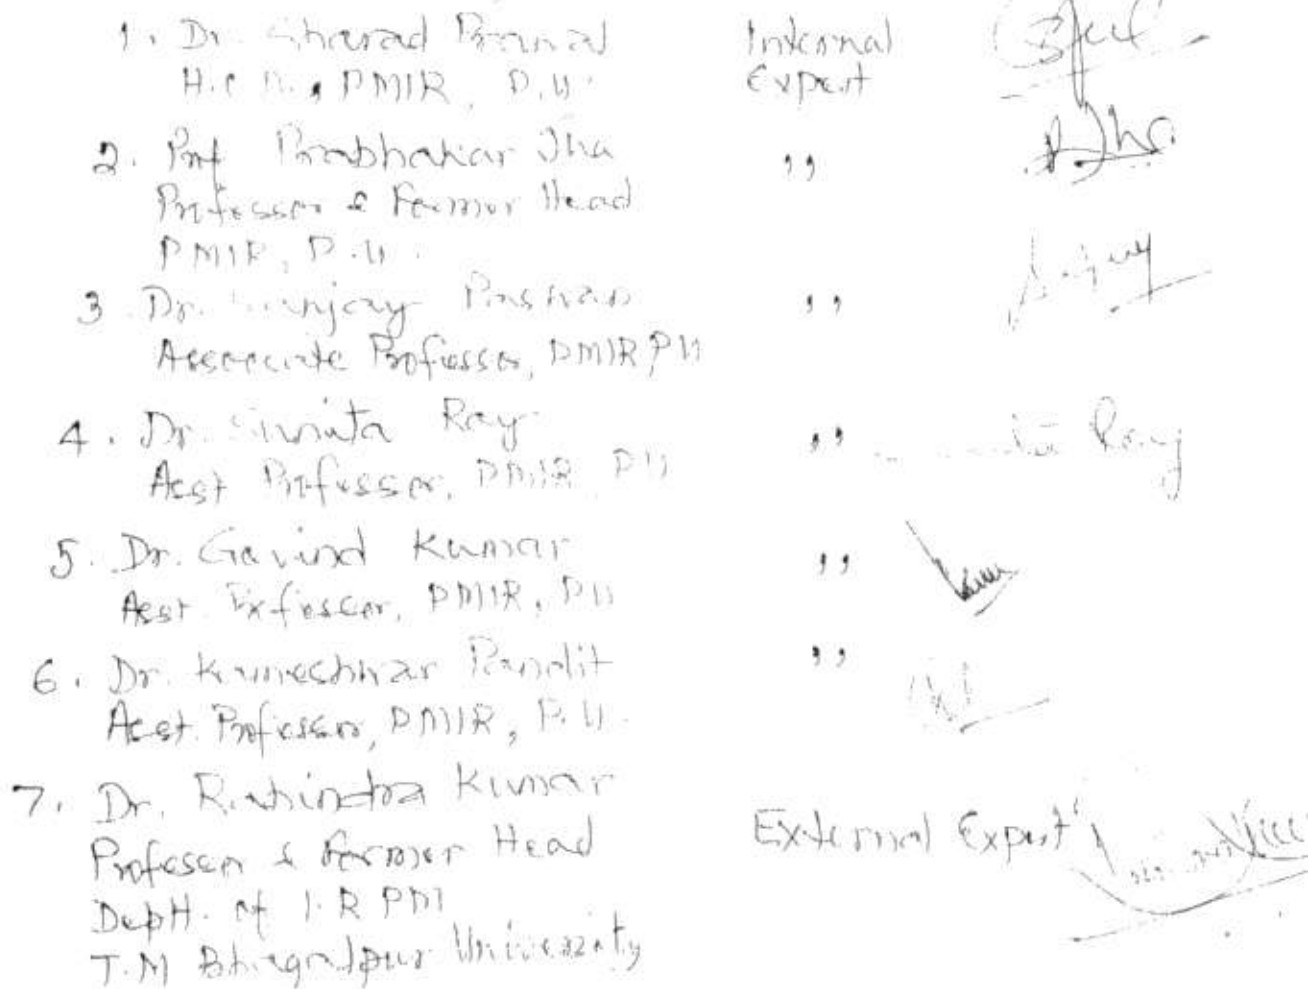 1. Dr. Sharad Internal
H.O.D., PMIR, P.U. Expert
2. Prof Prabhakar Jha ,,
Professor & Former Head
PMIR, P.U.
3 Dr. Sanjay Paswan ,,
Associate Professor, PMIR, PU
4. Dr. Sunita Ray ,, Ray
Asst Professor, PMIR PU
5. Dr. Govind Kumar ,,
Asst. Professor, PMIR, PU
6. Dr. Kameshwar Pandit ,,
Asst. Professor, PMIR, P.U.
7. Dr. Rabindra Kumar External Expert
Professor & Former Head
Deptt. of I.R PM
T.M Bhagalpur University